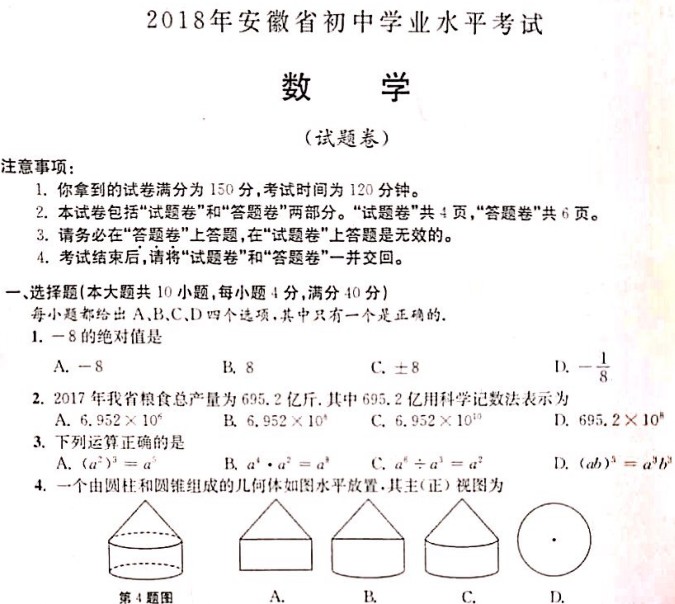 2018年安徽省初中学业水平考试
数 学
(试题卷)
注意事项:
1. 你拿到的试卷满分为 150 分,考试时间为 120 分钟。
2. 本试卷包括“试题卷”和“答题卷”两部分。“试题卷”共 4 页,“答题卷”共 6 页。
3. 请务必在“答题卷”上答题,在“试题卷”上答题是无效的。
4. 考试结束后,请将“试题卷”和“答题卷”一并交回。
一、选择题(本大题共 10 小题,每小题 4 分,满分 40 分)
每小题都给出 A、B、C、D 四个选项,其中只有一个是正确的.
1. －8 的绝对值是
A. －8 B. 8 C. ±8 D. －1/8
2. 2017 年我省粮食总产量为 695.2 亿斤.其中 695.2 亿用科学记数法表示为
A. 6.952×10⁶ B. 6.952×10⁸ C. 6.952×10¹⁰ D. 695.2×10⁸
3. 下列运算正确的是
A. (a²)³ = a⁵ B. a⁴·a² = a⁸ C. a⁶÷a³ = a² D. (ab)³ = a³b³
4. 一个由圆柱和圆锥组成的几何体如图水平放置,其主(正)视图为
第 4 题图 A. B. C. D.